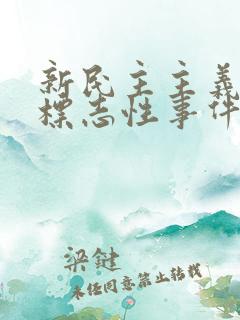 新民主主义
标志性事件
梁鍵
未经同意禁止转载